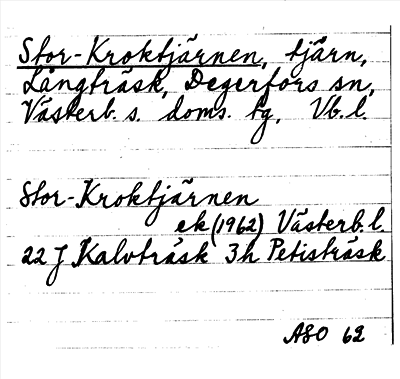 Stor-Kroktjärnen, tjärn,
Långträsk, Degerfors sn,
Västerb. s. doms. tg, Vb. l.
Stor-Kroktjärnen
ek (1962) Västerb. l.
22 J Kalvträsk 3h Petisträsk
ASO 62